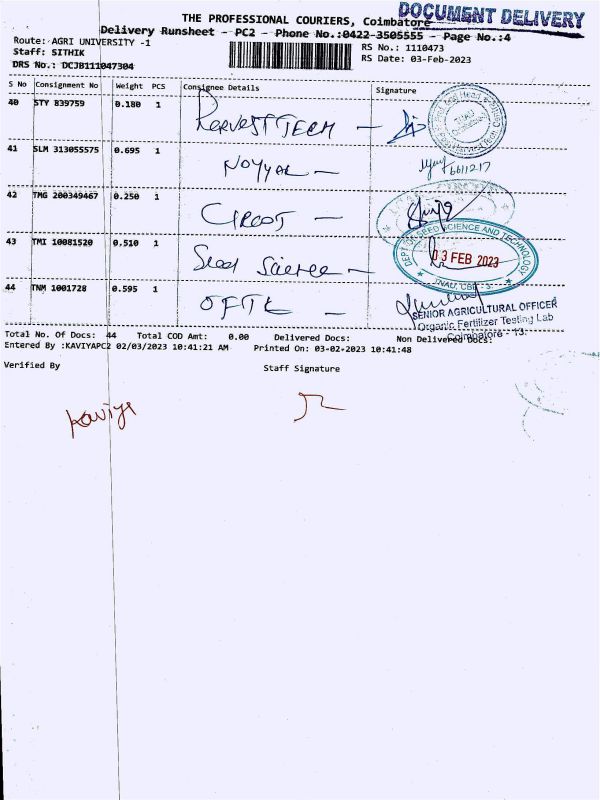 DOCUMENT DELIVERY
THE PROFESSIONAL COURIERS, Coimbatore
Delivery Runsheet - PC2 - Phone No.:0422-3505555 - Page No.:4
Route: AGRI UNIVERSITY -1
RS No.: 1110473
Staff: SITHIK
RS Date: 03-Feb-2023
DRS No.: DCJB111047304
S No Consignment No Weight PCS Consignee Details Signature
40 STY 839759 0.180 1
41 SLM 313055575 0.695 1 NOYYAL —
42 TMG 200349467 0.250 1
43 TMI 10081520 0.510 1 Seed Science —
DEPT. OF SEED SCIENCE AND TECHNOLOGY
03 FEB 2023
TNAU, CBE - 3.
44 TNM 1001728 0.595 1 OFTL —
SENIOR AGRICULTURAL OFFICER
Organic Fertilizer Testing Lab
Coimbatore - 13.
Total No. Of Docs: 44 Total COD Amt: 0.00 Delivered Docs: Non Delivered Docs:
Entered By :KAVIYAPC2 02/03/2023 10:41:21 AM Printed On: 03-02-2023 10:41:48
Verified By Staff Signature
Kaviya